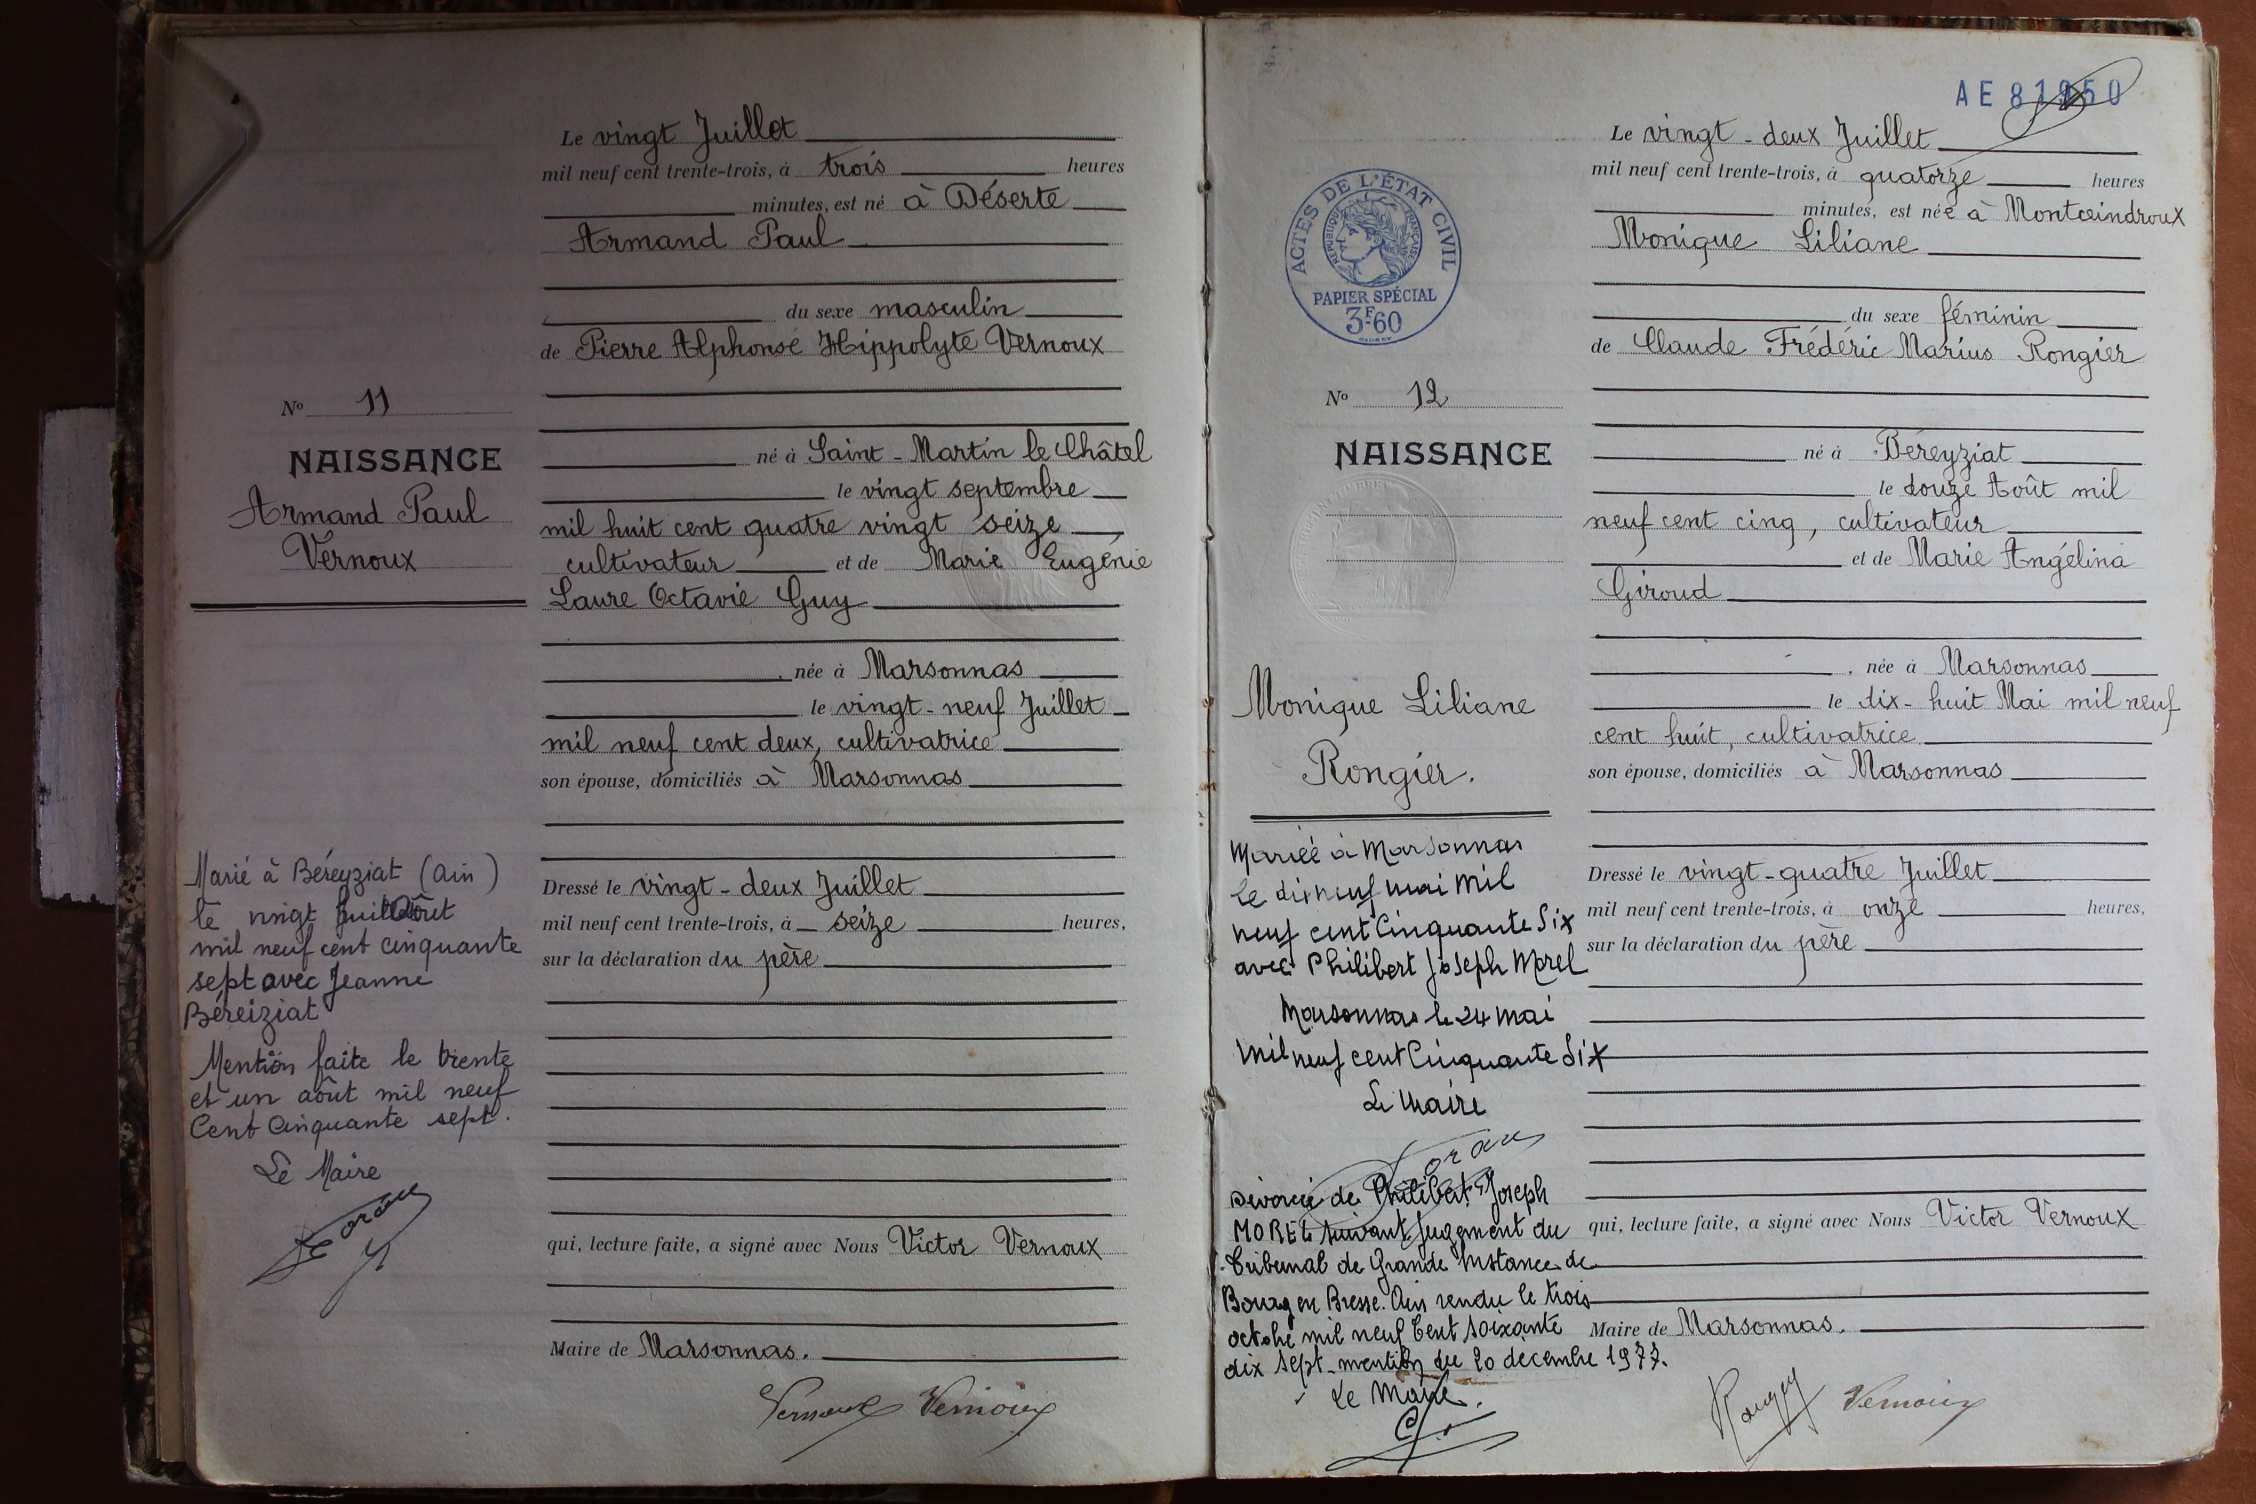 Le vingt Juillet
mil neuf cent trente-trois, à trois heures
minutes, est né à Déserte
Armand Paul
du sexe masculin
de Pierre Alphonse Hippolyte Vernoux
né à Saint-Martin le Châtel
le vingt septembre
mil huit cent quatre vingt seize
cultivateur et de Marie Eugénie
Laure Octavie Guy
née à Marsonnas
le vingt-neuf Juillet
mil neuf cent deux, cultivatrice
son épouse, domiciliés à Marsonnas
Dressé le vingt-deux Juillet
mil neuf cent trente-trois, à seize heures,
sur la déclaration du père
qui, lecture faite, a signé avec Nous Victor Vernoux
Maire de Marsonnas.
Vernoux Vernoux
No 11
NAISSANCE
Armand Paul
Vernoux
Marié à Béreyziat (Ain)
le vingt août
mil neuf cent cinquante
sept avec Jeanne
Béreiziat
Mention faite le trente
et un août mil neuf
Cent Cinquante sept.
Le Maire
AE 81950
ACTES DE L'ÉTAT CIVIL
RÉPUBLIQUE FRANÇAISE
PAPIER SPÉCIAL
3F60
No 12
NAISSANCE
Monique Liliane
Rongier.
Mariée à Marsonnas
le dix neuf mai mil
neuf cent Cinquante Six
avec Philibert Joseph Morel
Marsonnas le 24 mai
mil neuf cent Cinquante Six
Le Maire
Divorcée de Philibert Joseph
MOREL suivant jugement du
Tribunal de Grande Instance de
Bourg en Bresse. Ain rendu le trois
octobre mil neuf Cent soixante
dix sept mention du 20 decembre 1977.
Le Maire.
Le vingt-deux Juillet
mil neuf cent trente-trois, à quatorze heures
minutes, est née à Montceindroux
Monique Liliane
du sexe féminin
de Claude Frédéric Marius Rongier
né à Béreyziat
le douze Août mil
neuf cent cinq, cultivateur
et de Marie Angélina
Giroud
née à Marsonnas
le dix-huit Mai mil neuf
cent huit, cultivatrice
son épouse, domiciliés à Marsonnas
Dressé le vingt-quatre Juillet
mil neuf cent trente-trois, à onze heures,
sur la déclaration du père
qui, lecture faite, a signé avec Nous Victor Vernoux
Maire de Marsonnas.
Vernoux